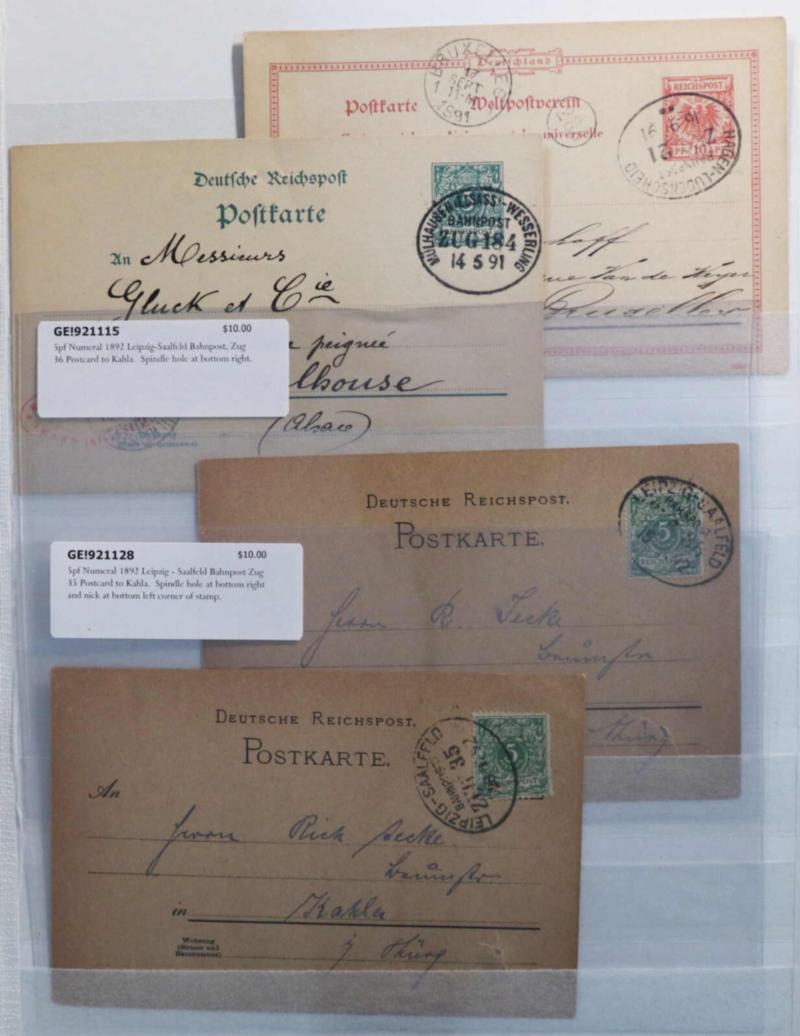 BRUXELLES
17
SEPT
1891
Deutschland
REICHSPOST
Postkarte Weltpostverein
universelle
10
HAGEN-LÜDENSCHEID
BAHNPOST
Deutsche Reichspost
Postkarte
MÜLHAUSEN (ELSASS)-WESSERLING
BAHNPOST
ZUG 184
14 5 91
An Messieurs
Gluck et Cie
peignée
lhouse
(Alsace)
GE!921115 $10.00
5pf Numeral 1892 Leipzig-Saalfeld Bahnpost, Zug
36 Postcard to Kahla. Spindle hole at bottom right.
DEUTSCHE REICHSPOST.
POSTKARTE.
LEIPZIG-SAALFELD
5
Herrn R. Jecke
Thürg
GE!921128 $10.00
5pf Numeral 1892 Leipzig - Saalfeld Bahnpost Zug
35 Postcard to Kahla. Spindle hole at bottom right
and nick at bottom left corner of stamp.
DEUTSCHE REICHSPOST.
POSTKARTE.
5
LEIPZIG-SAALFELD
BAHNPOST
ZUG 35
An
Herrn Rich Jecke
in Kahla
Thürg
Wohnung
(Strasse und
Hausnummer)